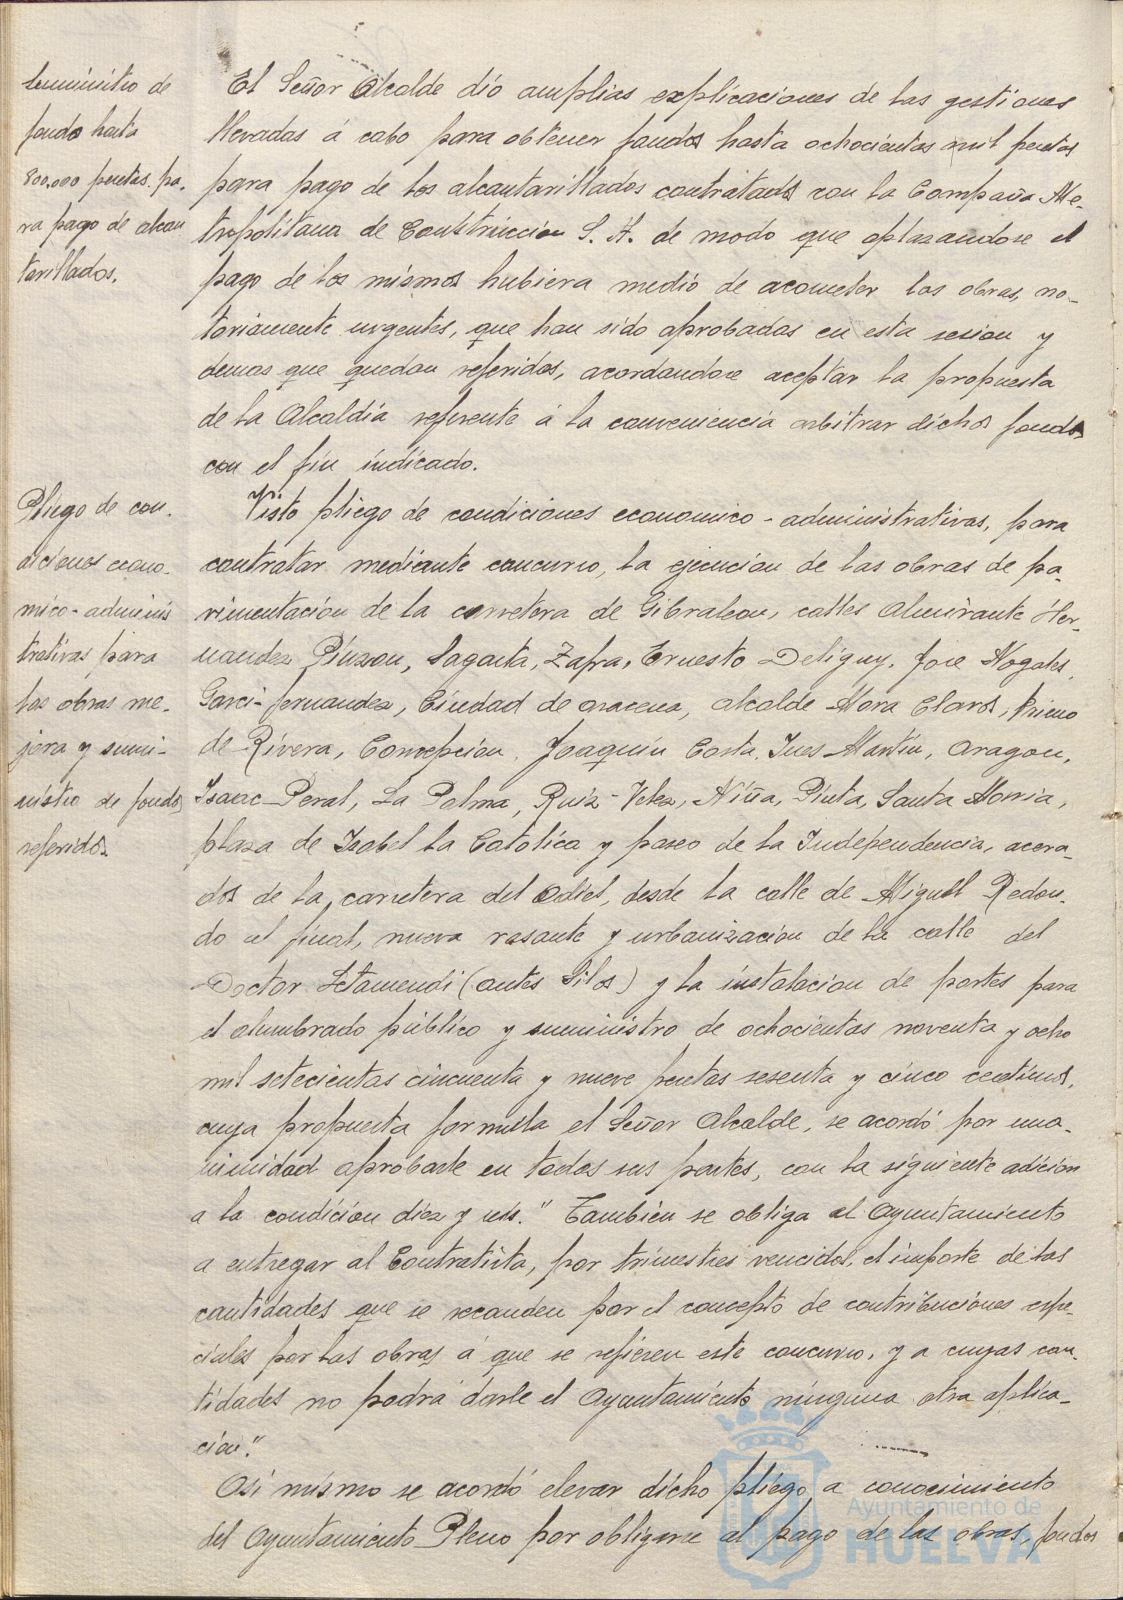 Suministro de
fondos hasta
800,000 pesetas pa-
ra pago de alcan
tarillados.
El Señor Alcalde dió amplias explicaciones de las gestiones
llevadas á cabo para obtener fondos hasta ochocientas mil pesetas
para pago de los alcantarillados contratados con la Compañia Me-
tropolitana de Construccion S. A. de modo que aplazandose el
pago de los mismos hubiera medio de acometer las obras, no-
toriamente urgentes, que han sido aprobadas en esta sesion y
demas que quedan referidas, acordandose aceptar la propuesta
de la Alcaldía referente á la conveniencia arbitrar dichos fondos
con el fin indicado.
Pliego de con-
diciones econo-
mico-adminis
trativas para
las obras me-
jora y sumi-
nistro de fondos
referidos.
Visto pliego de condiciones economico-administrativas, para
contratar mediante concurso, la ejecucion de las obras de pa-
vimentación de la carretera de Gibraleon, calles Almirante Her-
nandez Pinzon, Sagasta, Zafra, Ernesto Deligny, Jose Nogales,
Garci-fernandez, Ciudad de Aracena, Alcalde Mora Claros, Primo
de Rivera, Concepcion, Joaquin Costa, Ines Martin, Aragon,
Isaac Peral, La Palma, Ruiz-Velez, Niña, Pinta, Santa Maria,
plaza de Isabel la Católica y paseo de la Independencia, acera-
dos de la carretera del Odiel, desde la calle de Miguel Redon-
do al final, nueva rasante y urbanizacion de la calle del
Doctor Letamendi (antes Silos) y la instalacion de postes para
el alumbrado público y suministro de ochocientas noventa y ocho
mil setecientas cincuenta y nueve pesetas sesenta y cinco centimos,
cuya propuesta formula el Señor Alcalde, se acordó por una-
nimidad aprobarle en todas sus partes, con la siguiente adicion
a la condicion diez y seis. "Tambien se obliga el Ayuntamiento
a entregar al Contratista, por trimestres vencidos, el importe de las
cantidades que se recauden por el concepto de contribuciones espe-
ciales por las obras á que se refieren este concurso, y a cuyas can-
tidades no podrá darle el Ayuntamiento ninguna otra aplica-
cion."
Asi mismo se acordó elevar dicho pliego a conocimiento
del Ayuntamiento Pleno por obligarse al pago de las obras, fondos
Ayuntamiento de
HUELVA